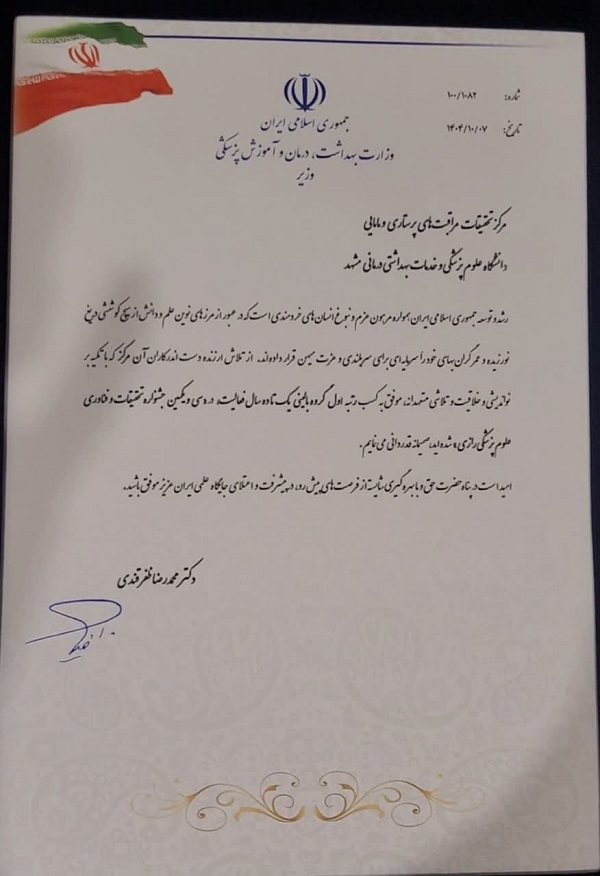 شماره: ۱۰۰/۱۰۸۲
تاریخ: ۱۴۰۴/۱۰/۰۷
جمهوری اسلامی ایران
وزارت بهداشت، درمان و آموزش پزشکی
وزیر
مرکز تحقیقات مراقبت‌های پرستاری و مامایی
دانشگاه علوم پزشکی و خدمات بهداشتی درمانی مشهد
رشد و توسعه جمهوری اسلامی ایران، همواره مرهون عزم و نبوغ انسان‌های خردمندی است که در عبور از مرزهای نوین علم و دانش از هیچ کوششی دریغ
نورزیده و عمر گران‌بهای خود را سرمایه‌ای برای سربلندی و عزت میهن قرار داده‌اند. از تلاش ارزنده دست اندرکاران آن مرکز که با تکیه بر
نواندیشی و خلاقیت و تلاشی متعهدانه، موفق به کسب رتبه اول گروه بالینی یک تا ده سال فعالیت، در سی و یکمین جشنواره تحقیقات و فناوری
علوم پزشکی رازی» شده‌اید، صمیمانه قدردانی می‌نمایم.
امید است در پناه حضرت حق و با بهره‌گیری شایسته از فرصت‌های پیش رو، در پیشرفت و اعتلای جایگاه علمی ایران عزیز موفق باشید.
دکتر محمدرضا ظفرقندی